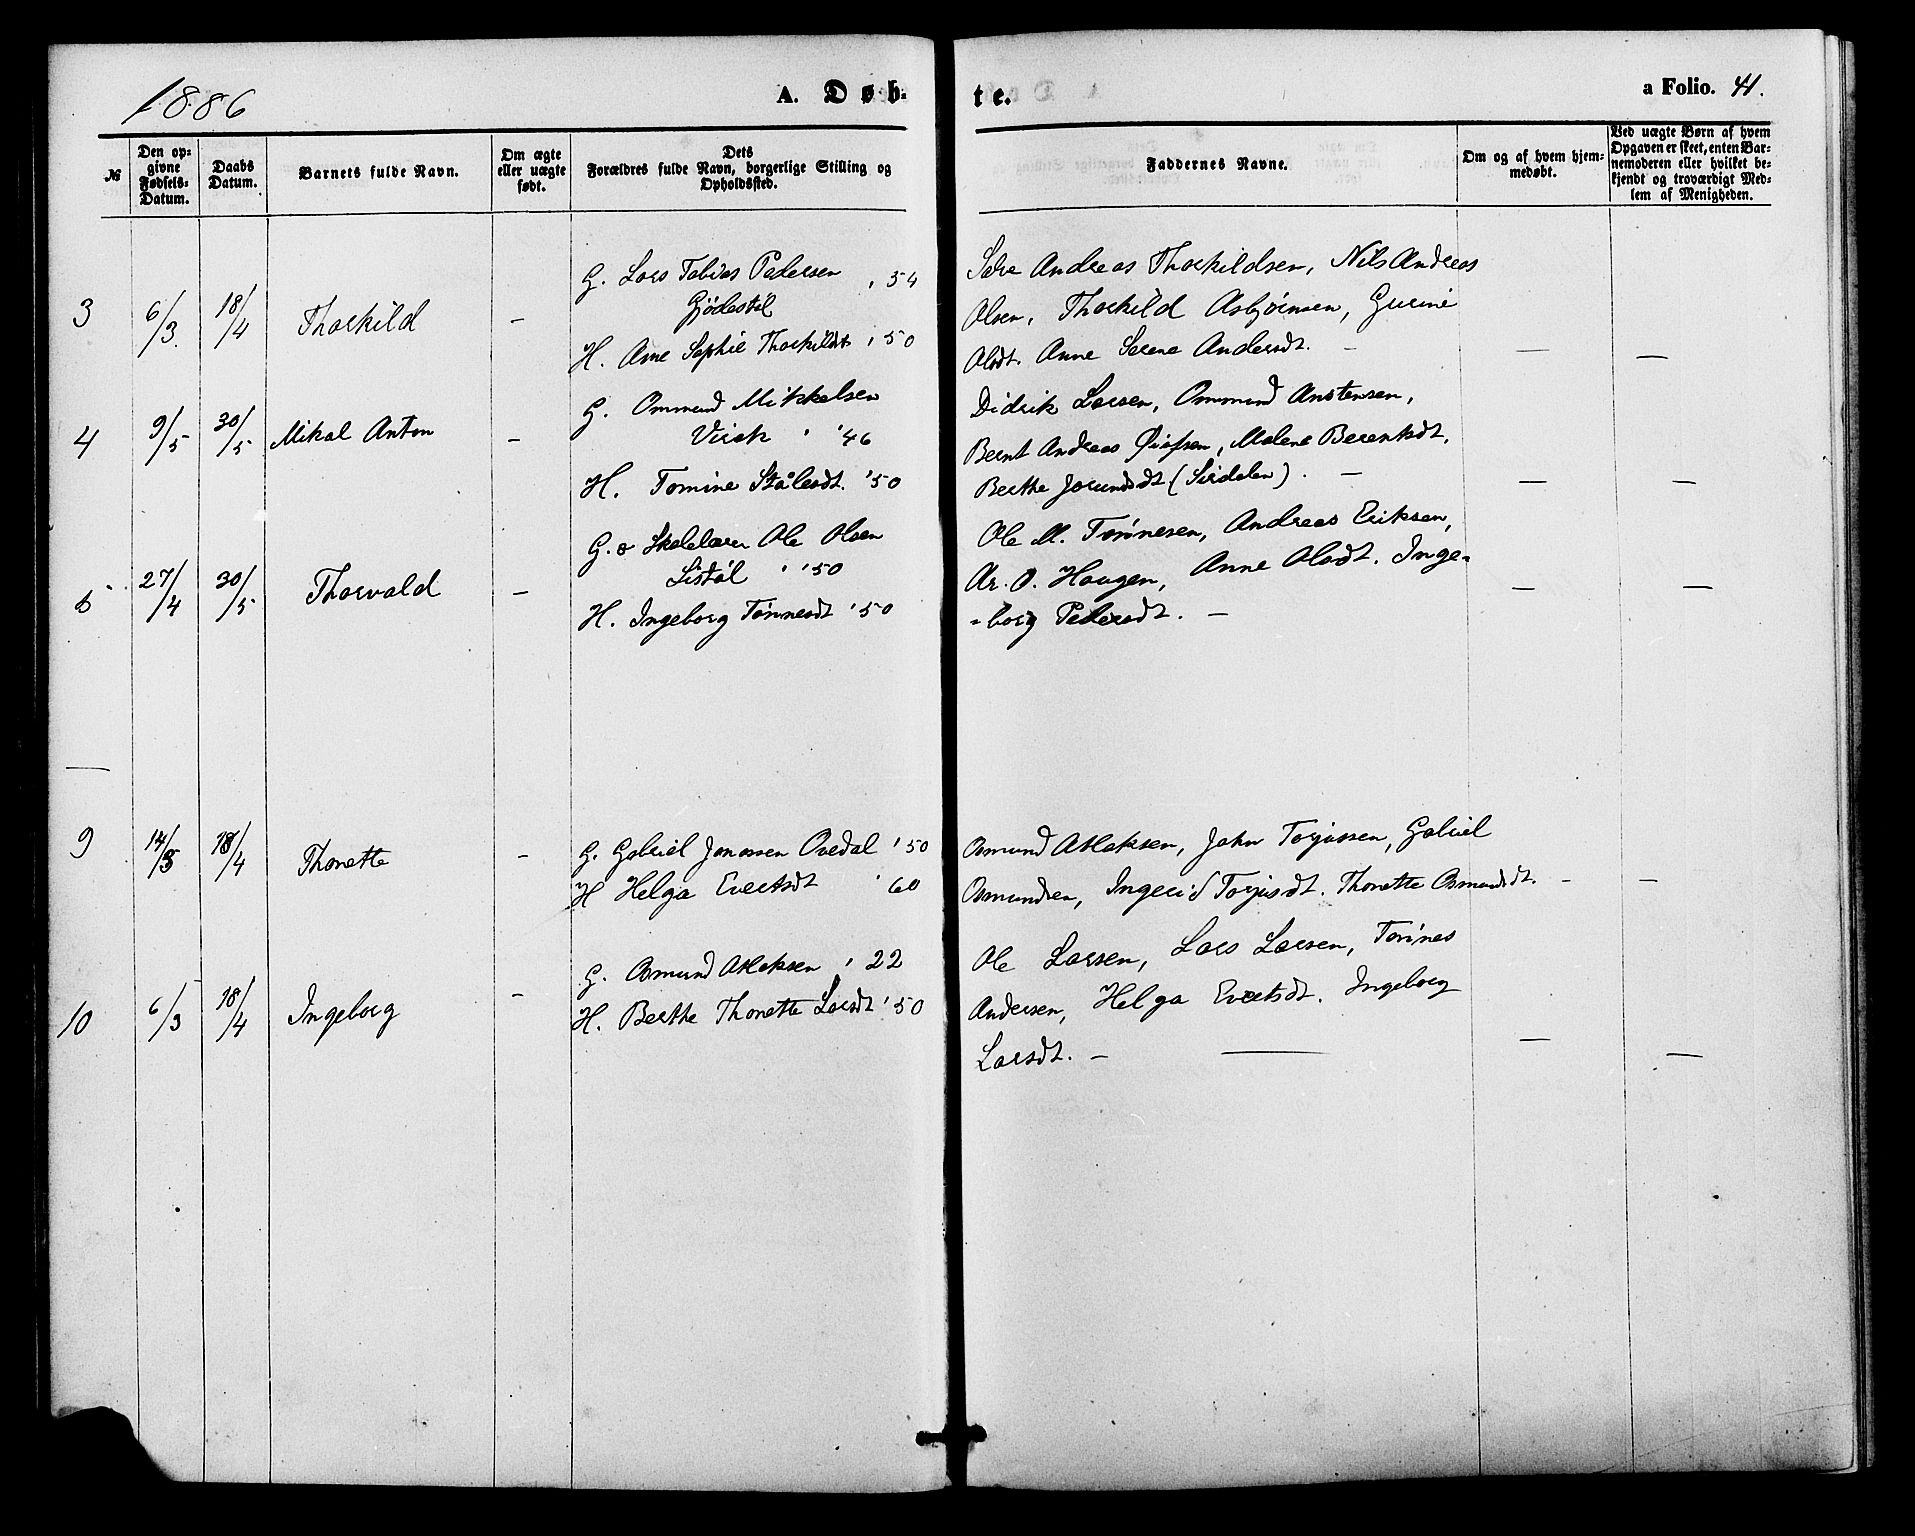 1886
A. Døb-
te.
a Folio. 41.
№
Den op-
givne
Fødsels-
Datum.
Daabs
Datum.
Barnets fulde Navn.
Om ægte
eller uægte
født.
Dets
Forældres fulde Navn, borgerlige Stilling og
Opholdssted.
Faddernes Navne.
Om og af hvem hjem-
medøbt.
Ved uægte Børn af hvem
Opgaven er skeet, enten Bar-
nemoderen eller hvilket be-
kjendt og troværdigt Med-
lem af Menigheden.
3 6/3 18/4 Thorkild –
G. Lars Tobias Pedersen '54
Gjødestøl
H. Ane Sophie Thorkildsdt '50
Andreas Thorkildsen, Nils Andreas
Olsen, Thorkild Asbjørnsen, Gurine
Olsdt. Anne Serene Andersdt. – — —
4 9/5 30/5 Mikal Anton –
G. Ommund Mikkelsen
Virak ' '46
H. Tomine Stålesdt. '50
Didrik Larsen, Ommund Anstensen,
Bernt Andreas, Malene Berentsdt,
Berthe Jorundsdt (Sirdalen). – — —
27/4 30/5 Thorvald –
G. o Skolelærer Ole Olsen
Listøl ' '50
H. Ingeborg Tønnesdt '50
Ole M. Tønnesen, Andreas Eriksen,
O. Haugen, Anne Olsdt. Inge-
-borg Pedersdt. – — —
—
9 14/3 18/4 Thonette –
G. Gabriel Jonassen Ovedal '50
H Helga Evertsdt ' 60
Osmund Atlaksen, John Torjussen, Gabriel
Osmundsen, Ingerid Torjusdt. Thonette Osmundsdt. – —
10 6/3 18/4 Ingeborg –
G. Osmund Atlaksen ' 22
H. Berthe Thonette Larsdt '50
Ole Larsen, Lars Larsen, Tønnes
Andersen, Helga Evertsdt. Ingeborg
Larsdt. – — — —